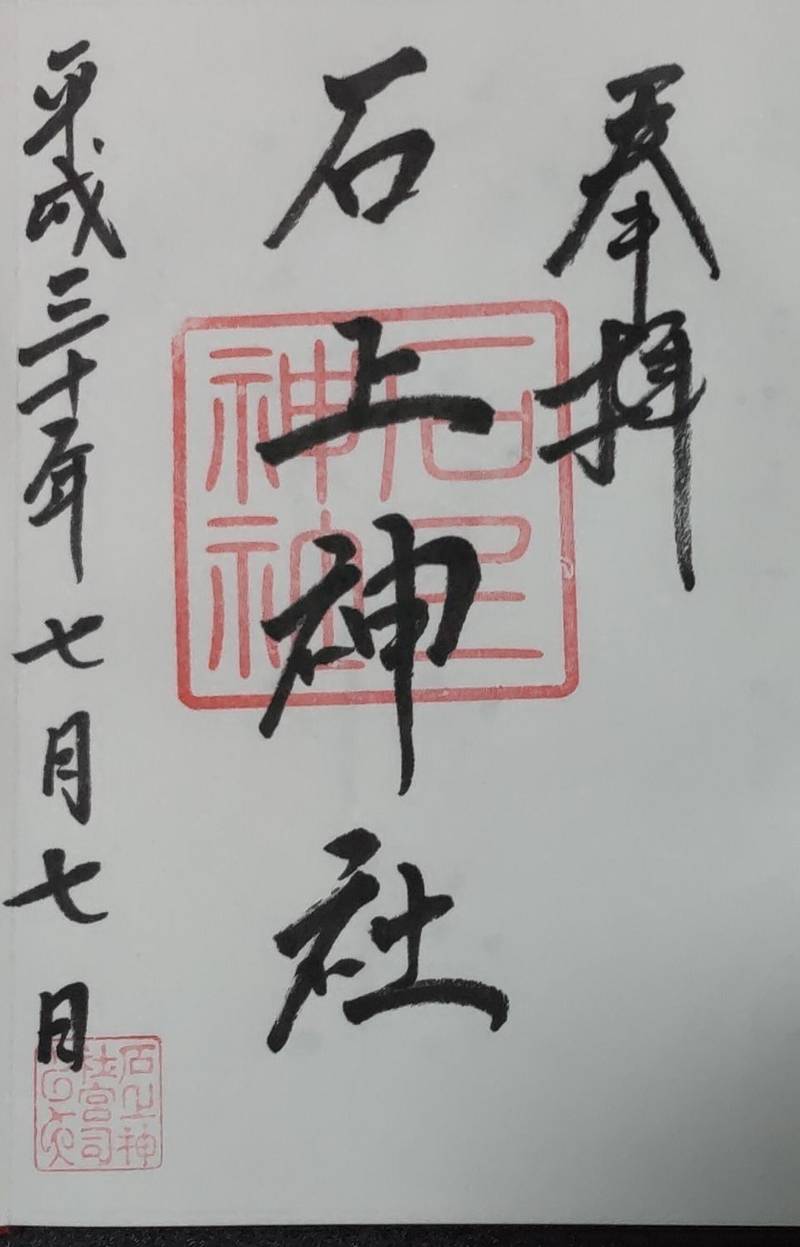 奉拝
石上神社
平成三十年七月七日
石上神社
石上神社宮司